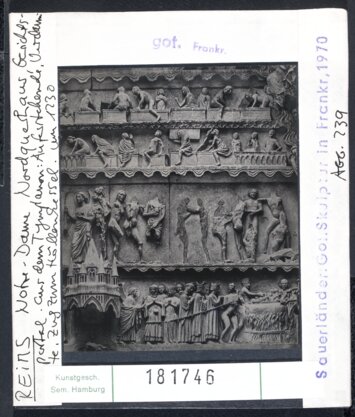 got. Frankr.
REIMS Notre-Dame Nordquerhaus Gerichts-
portal. aus dem Tympanon: Auferstehende, darun
te. Zug zum Höllenkessel. um 1230
Sauerländer: Got. Skulptur in Frankr, 1970
Abb. 239
Kunstgesch.
Sem. Hamburg
181746